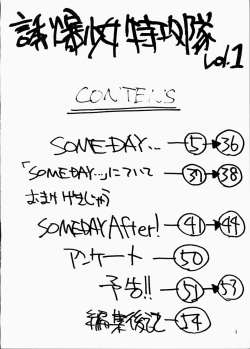 誘爆少女特攻隊 vol.1
CONTENS
SOMEDAY… ⑤→㊱
「SOMEDAY…」について ㊲→㊳
おまけ
SOMEDAY After! ㊶→㊹
アンケート ㊿
予告!! 51→53
編集後記 54